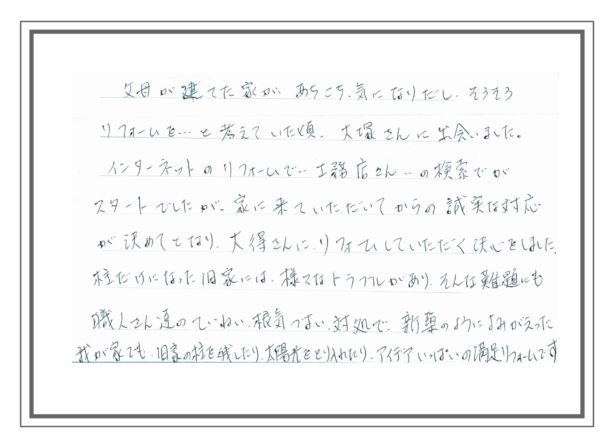 父母が建てた家が あちこち、気になりだし、そろそろ
リフォームを…と考えていた頃、大塚さんに出会いました。
インターネットのリフォームで…工務店さん…の検索でが
スタートでしたが、家に来ていただいてからの誠実な対応
が決めてとなり、大得さんに、リフォームしていただく決心をしました。
柱だけになった旧家には、様々なトラブルがあり、そんな難題にも
職人さん達のていねい、根気づよい、対処で、新築のようによみがえった
我が家でも、旧家の柱を残したり、太陽光をとり入れたり、アイデアいっぱいの満足リフォームです